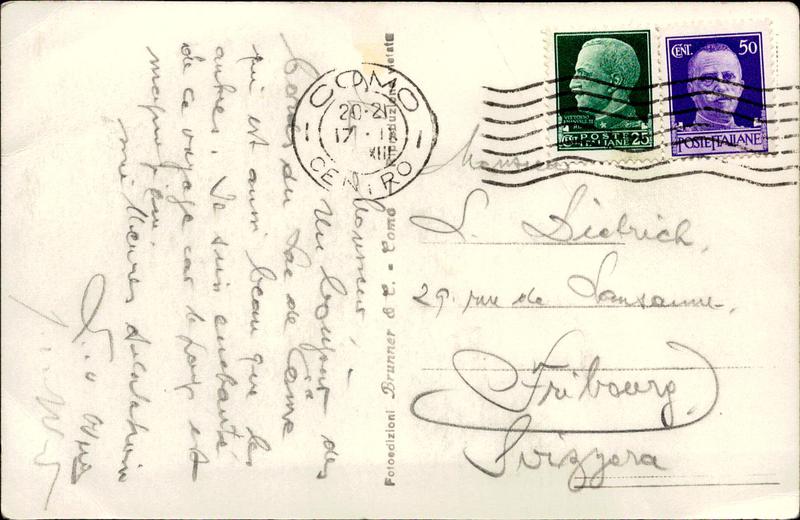 Monsieur,
Un bonjour des
bords du Lac de Come
qui est aussi beau que les
autres. Je suis enchanté
de ce voyage car le pays est
magnifique.
Meilleures salutations
Fotoedizioni Brunner & C. - Como
COMO
20-21
17
XIII
CENTRO
POSTE
ITALIANE 25
CENT. 50
POSTE ITALIANE
Monsieur
L. Dietrich,
29. rue de Lausanne,
Fribourg
Svizzera